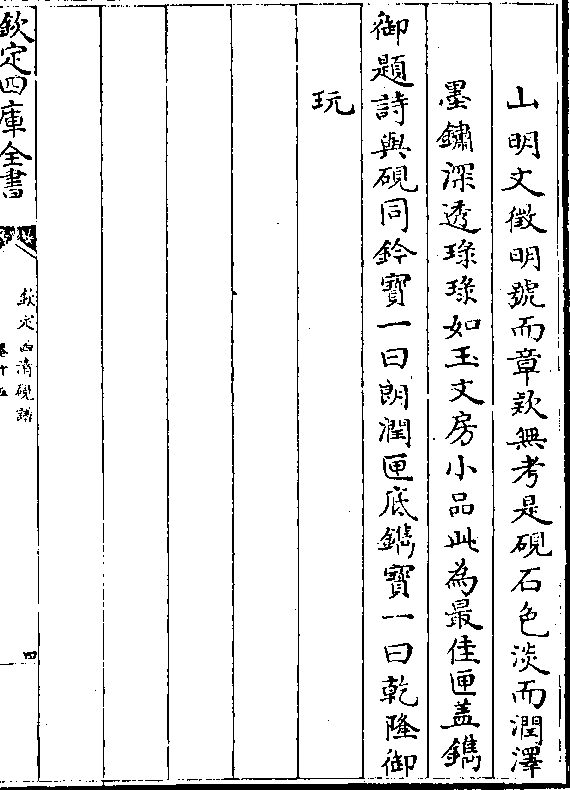 山明文徵明號而章欵無考是硯石色淡而潤澤
墨鏽深透琭琭如玉文房小品此為最佳匣盖鐫
御題詩與硯同鈐寶一曰朗潤匣底鐫寶一曰乾隆御
玩
欽定四庫全書
欽定西清硯譜
卷十五
四